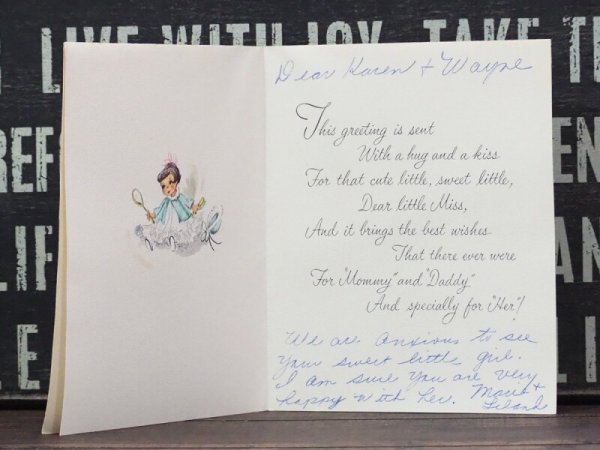 LIVE WITH JOY. TAKE
REF
EN
LIF
AN
E
Dear Karen + Wayne
This greeting is sent
With a hug and a kiss
For that cute little, sweet little,
Dear little Miss,
And it brings the best wishes
That there ever were
For "Mommy" and "Daddy"
And specially for "Her"!
We are anxious to see
your sweet little girl.
I am sure you are very
happy with her.
Leland